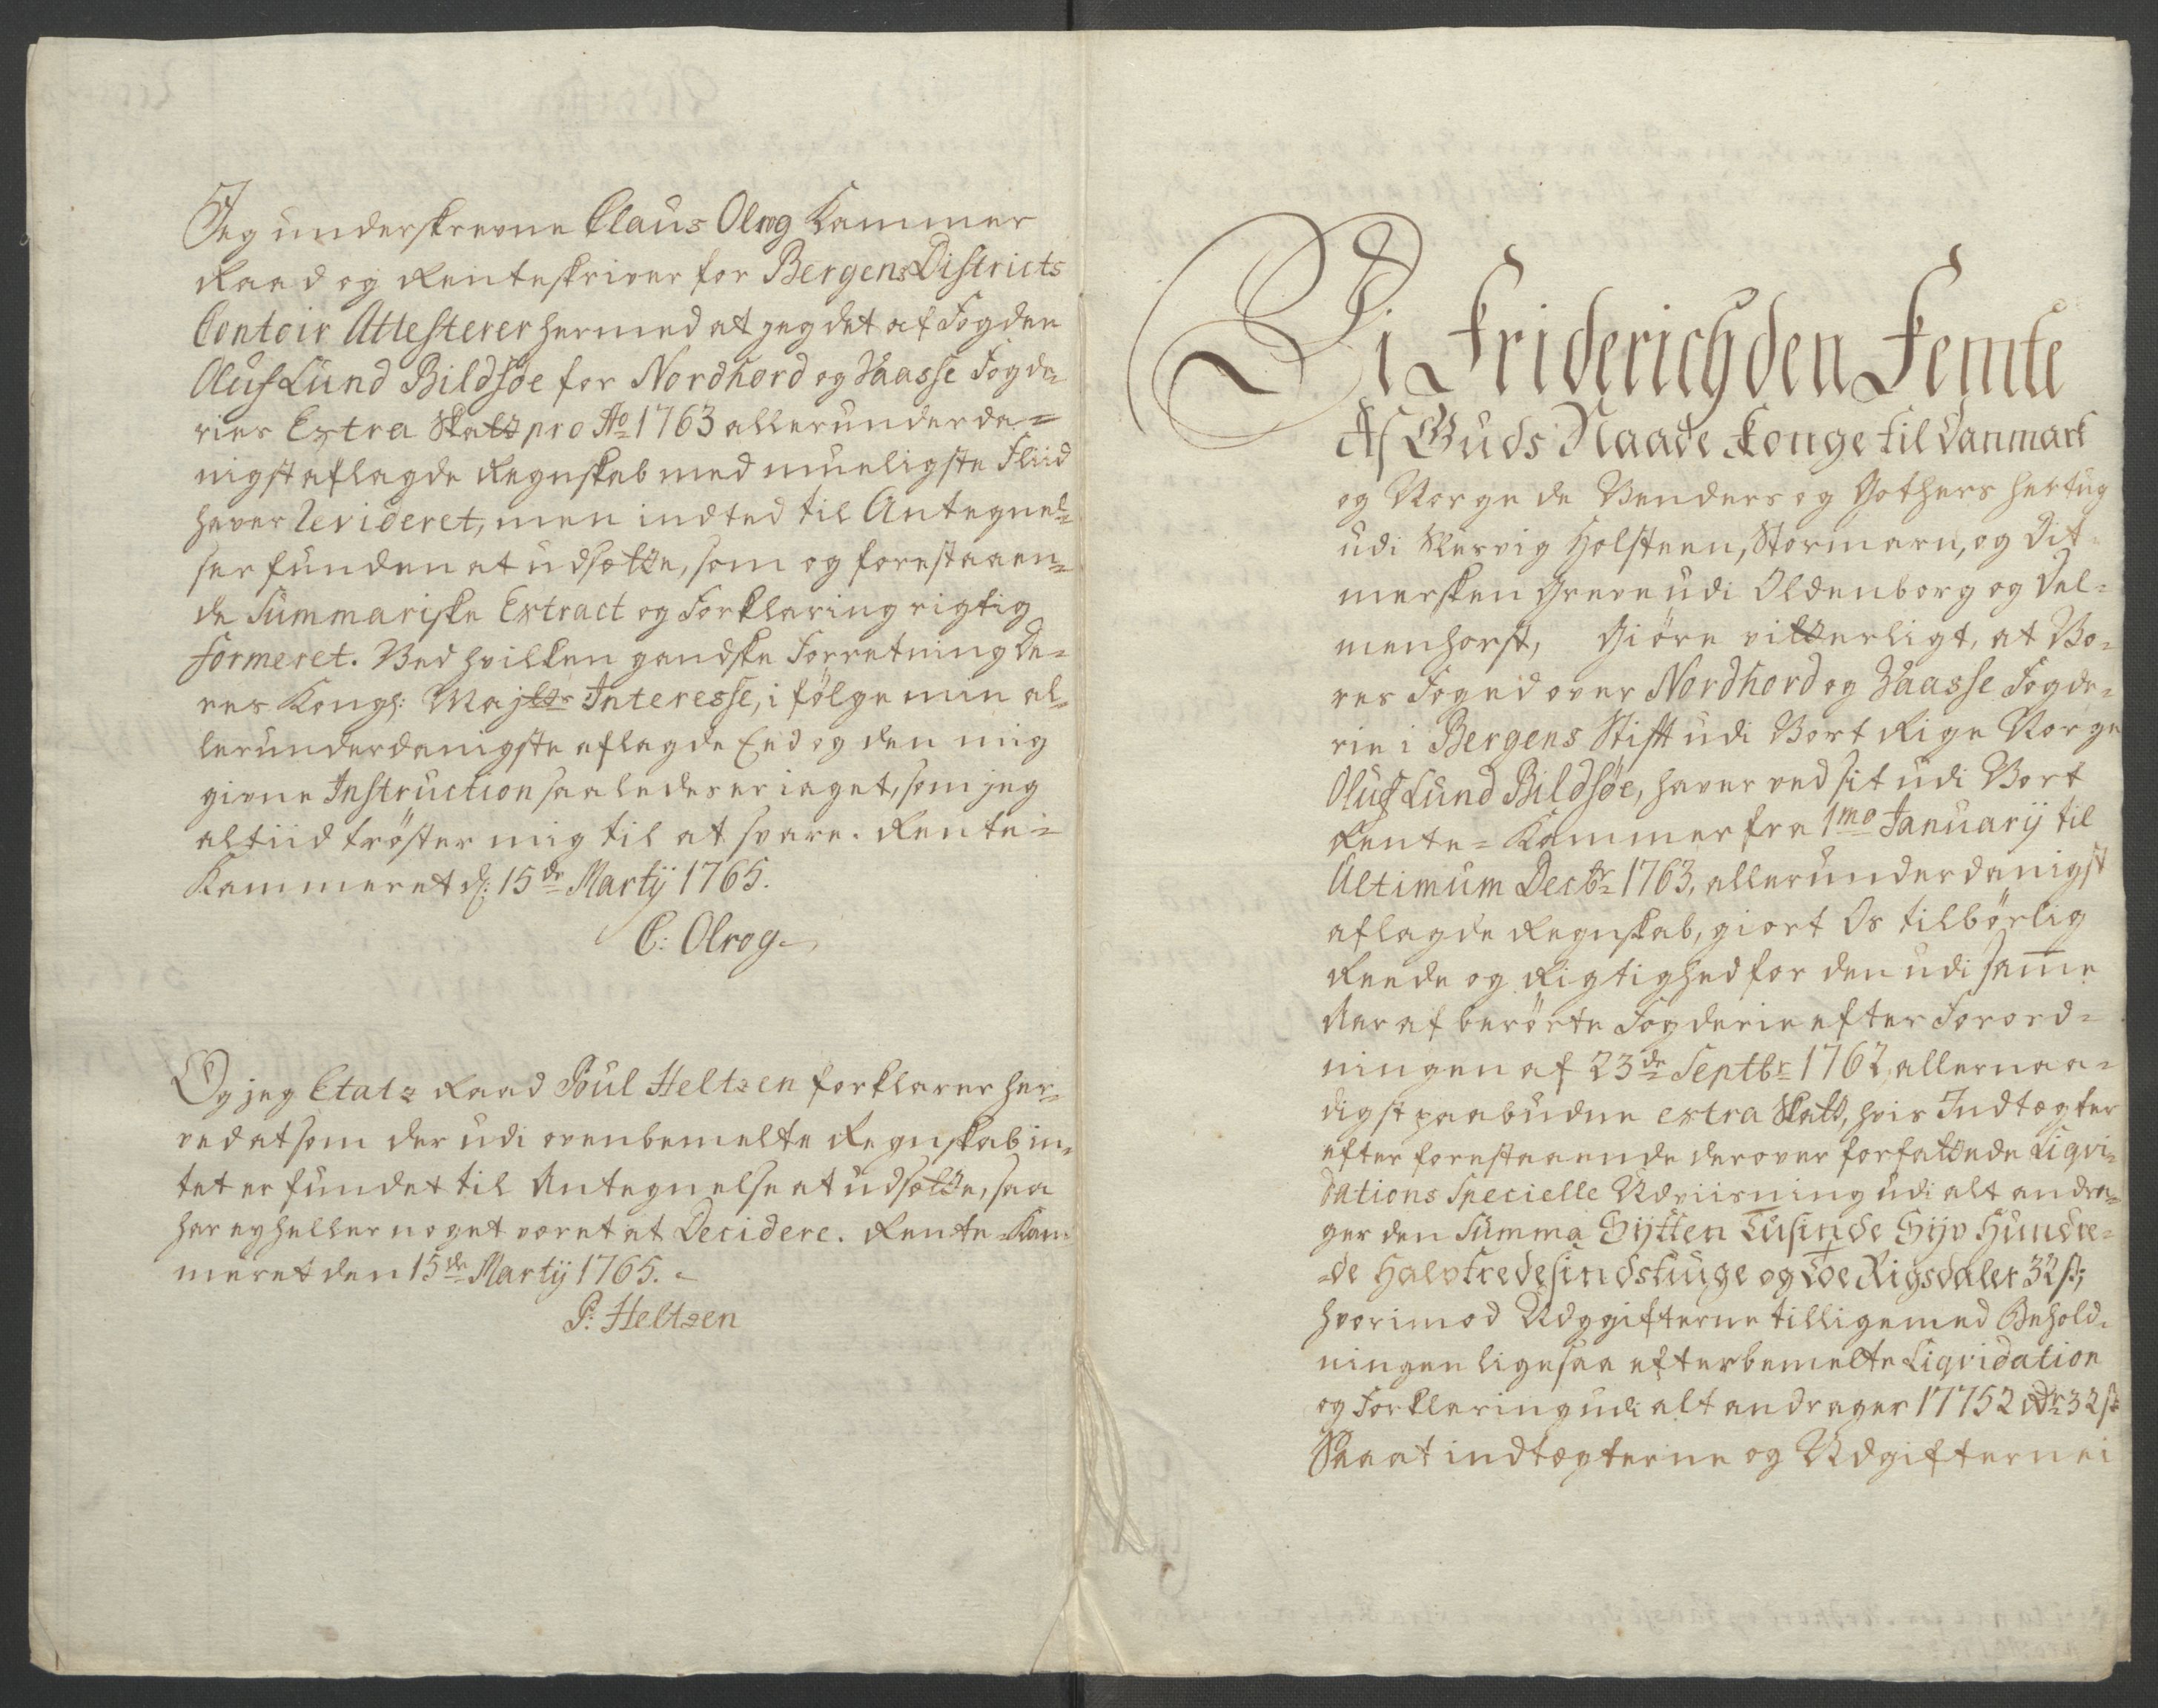 Jeg underskrevne Claus Olrog Kammer
Raad og Renteskriver for Bergens Districts
Contoir Attesterer hermed at jeg det af Fogden
Oluf Lund Bildsøe for Nordhord og Vaasse Fogde-
ries Extra Skatt pro Ao 1763 allerunderda=
nigst aflagde Regnskab med mueligste Fliid
haver Revideret, men indted til Antegnel=
ser funden at udsætte, som og forestaaen=
de Summariske Extract og Forklaring rigtig
formeret. Ved hvilken gandske Forretning De=
res Kongl: Maytts Interesse, i følge min al=
lerunderdanigste aflagde Eed og den mig
givne Instruction saaledes er iaget, som jeg
altiid trøster mig til at svare. Rente=
Kammeret d: 15de Martij 1765.
C: Olrog
Og jeg Etatz Raad Poul Heltzen forklarer her=
ved at som der udi ovenbemelte Regnskab in=
tet er fundet til Antegnelse at udsætte, saa
har ey heller noget været at Decidere. Rente=Kam=
meret den 15de Martij 1765.
P: Heltzen
Vi Friderich den Femte
Af Guds Naade Konge til Danmark
og Norge de Venders og Gothers Hertug
udi Slesvig Holsteen, Stormarn, og Dit=
mersken Greve udi Oldenborg og Del=
menhorst, Giøre vitterligt, at Vo=
res Foged over Nordhord og Vaasse Fogde=
rie i Bergens Stift udi Vort Rige Norge
Oluf Lund Bildsøe, haver ved sit udi Vort
Rente=Kammer fra 1mo Januarij til
Ultimum Decbr 1763, allerunderdanigst
aflagde Regnskab, giort Os tilbørlig
Reede og Rigtighed for den udi same
Aar af berørte Fogderie efter Forord=
ningen af 23de Septbr 1762 allernaa=
digst paabudne extra Skatt, hvis Indtægter
efter forestaaende derover forfattede Liqvi=
dations Specielle Udviisning udi alt andra=
ger den Summa Sytten Tusinde Syv Hundre=
=de Halvtredesindstiuge og Toe Rigsdaler 32 s;
hvorimod Udggifterne tilligemed Behold=
ningen ligesaa efter bemelte Liqvidation
og Forklaring udi alt andrager 17752 Rdr 32 s
Saa at indtægterne og Udgifterne i